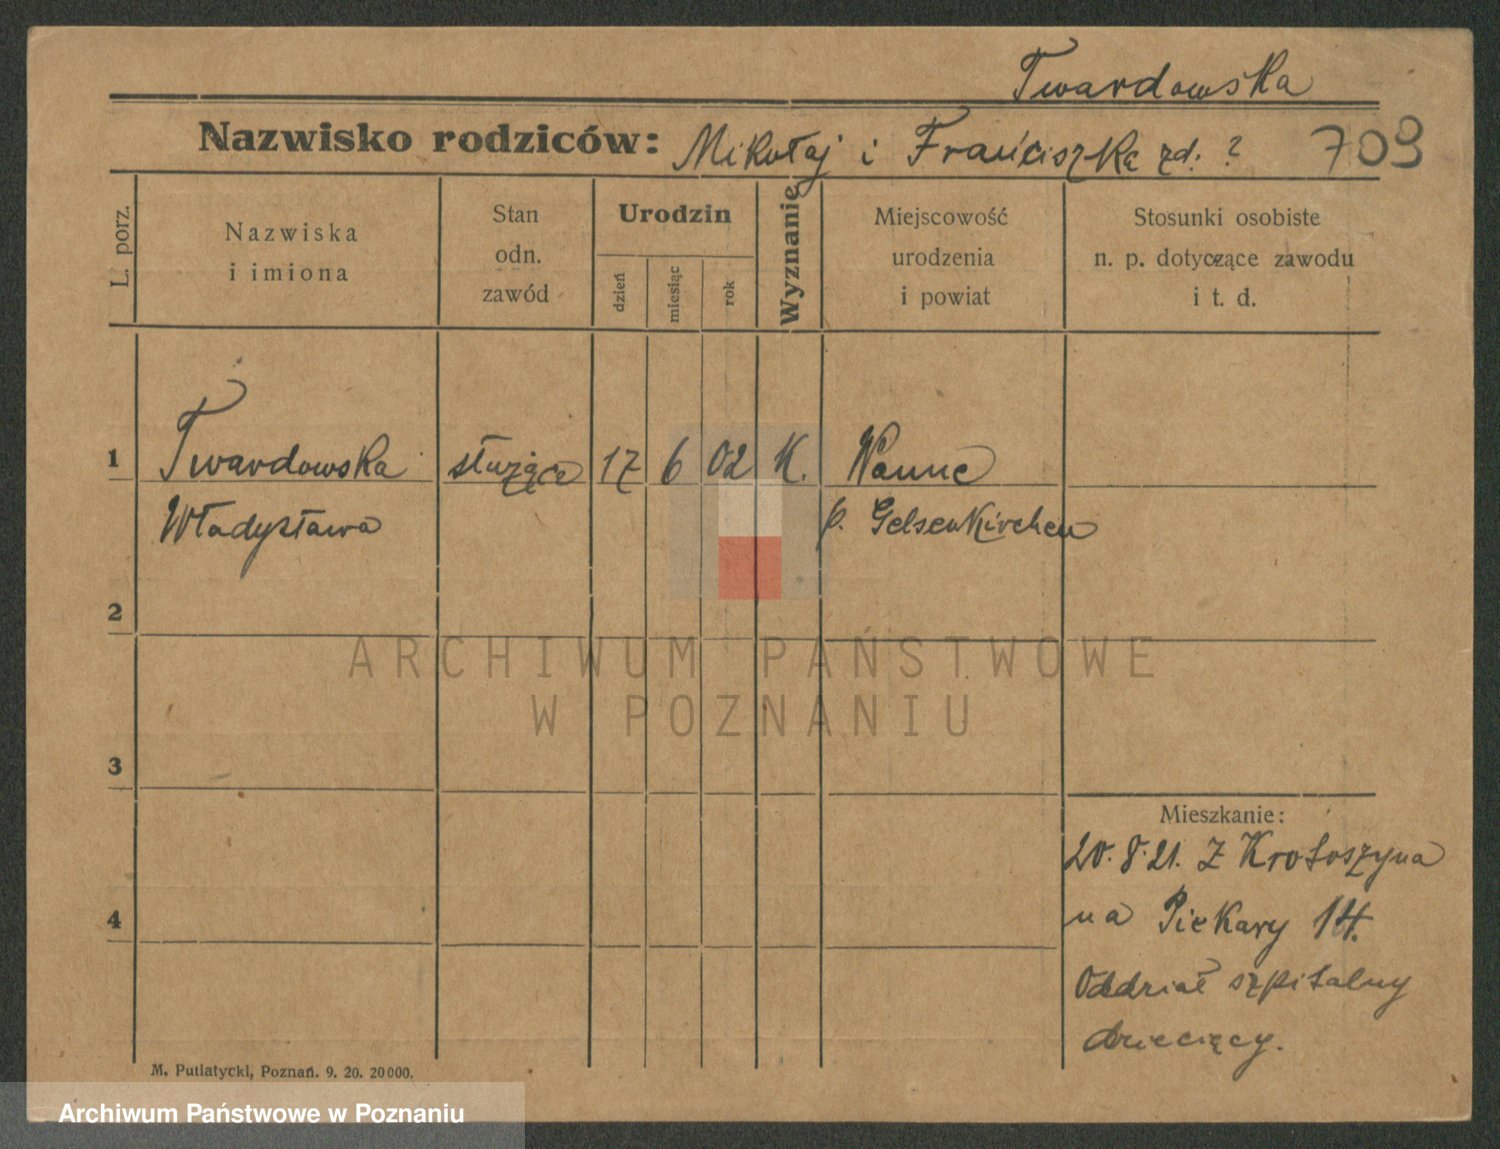 Twardowska
Nazwisko rodziców: Mikołaj i Franciszka zd. ? 709
L. porz.
Nazwiska
i imiona
Stan
odn.
zawód
Urodzin
dzień
miesiąc
rok
Wyznanie
Miejscowość
urodzenia
i powiat
Stosunki osobiste
n. p. dotyczące zawodu
i t. d.
1 Twardowska służąca 17 6 02 K. Wanne
Władysława p. Gelsenkirchen
2
3
4
Mieszkanie:
20.8.21. z Krotoszyna
na Piekary 14.
Oddział szpitalny
dziecięcy.
M. Putiatycki, Poznań. 9. 20. 20000.
ARCHIWUM PAŃSTWOWE
W POZNANIU
Archiwum Państwowe w Poznaniu